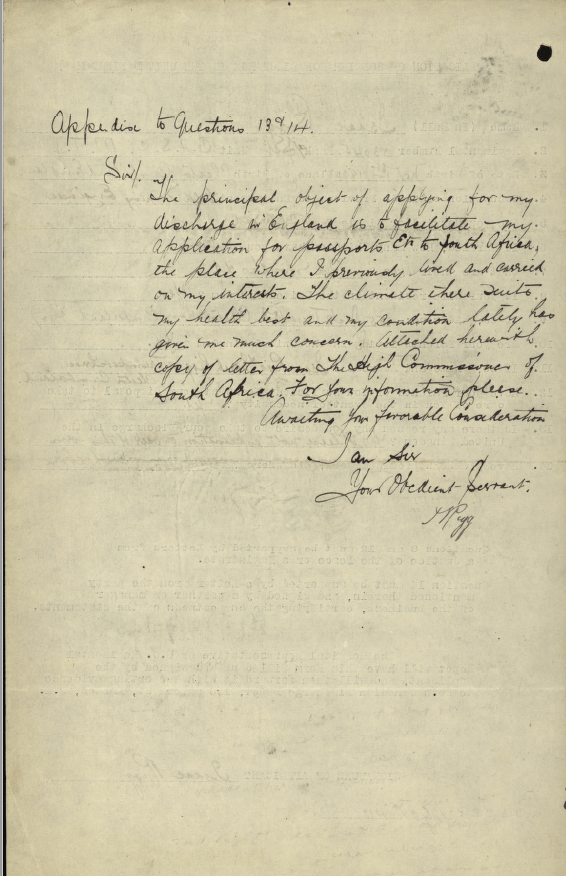 Appendix to Questions 13 & 14.
Sir/.
The principal object of applying for my
discharge in England is to facilitate my
application for passports Etc to South Africa,
the place where I previously lived and carried
on my interests. The climate there suits
my health best and my condition lately has
given me much concern. Attached herewith
copy of letter from The High Commissioner of
South Africa. For your information please.
Awaiting Your favorable Consideration
I am Sir
Your Obedient Servant.